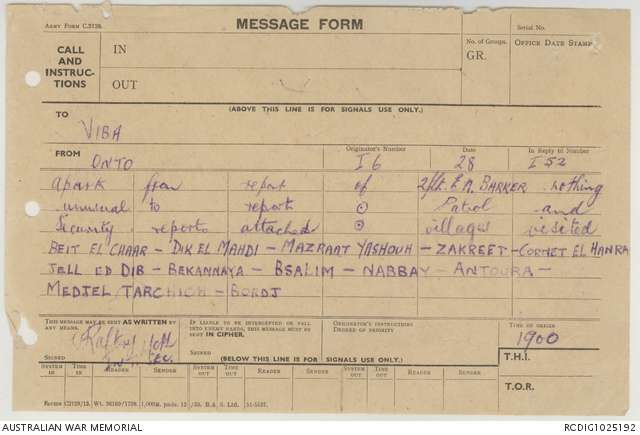 ARMY FORM C.2128.
MESSAGE FORM
Serial No.
CALL AND INSTRUC- TIONS
IN
OUT
No. of Groups.
GR.
OFFICE DATE STAMP
(ABOVE THIS LINE IS FOR SIGNALS USE ONLY.)
TO
VIBA
FROM
ONTO
Originator's Number
I 6
Date
28
In Reply to Number
I 52
apart from report of 2/Lt. E.A. BARKER nothing
unusual to report ⊙ Patrol and
Security reports attached ⊙ villages visited
BEIT EL CHAAR - DIK EL MAHDI - MAZRAAT YASHOUH - ZAKREET - CORNET EL HANRA
JELL ED DIB - BEKANNAYA - BSALIM - NABBAY - ANTOURA -
MEDJEL TARCHICH - BORDJ
THIS MESSAGE MAY BE SENT AS WRITTEN BY ANY MEANS.
IF LIABLE TO BE INTERCEPTED OR FALL INTO ENEMY HANDS, THIS MESSAGE MUST BE SENT IN CIPHER.
ORIGINATOR'S INSTRUCTIONS
DEGREE OF PRIORITY
TIME OF ORIGIN
1900
SIGNED
SIGNED
(BELOW THIS LINE IS FOR SIGNALS USE ONLY.)
T.H.I.
SYSTEM IN
TIME IN
READER
SENDER
SYSTEM OUT
TIME OUT
READER
SENDER
SYSTEM OUT
TIME OUT
READER
SENDER
T.O.R.
AUSTRALIAN WAR MEMORIAL
RCDIG1025192